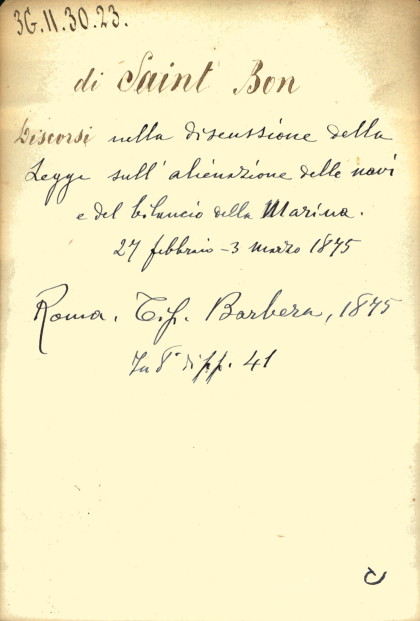 3G.11.30.23.
di Saint Bon
Discorsi nella discussione della
Legge sull'alienazione delle navi
e del bilancio della Marina.
27 febbraio - 3 marzo 1875
Roma. Tip. Barbera, 1875
In 8° di pp. 41